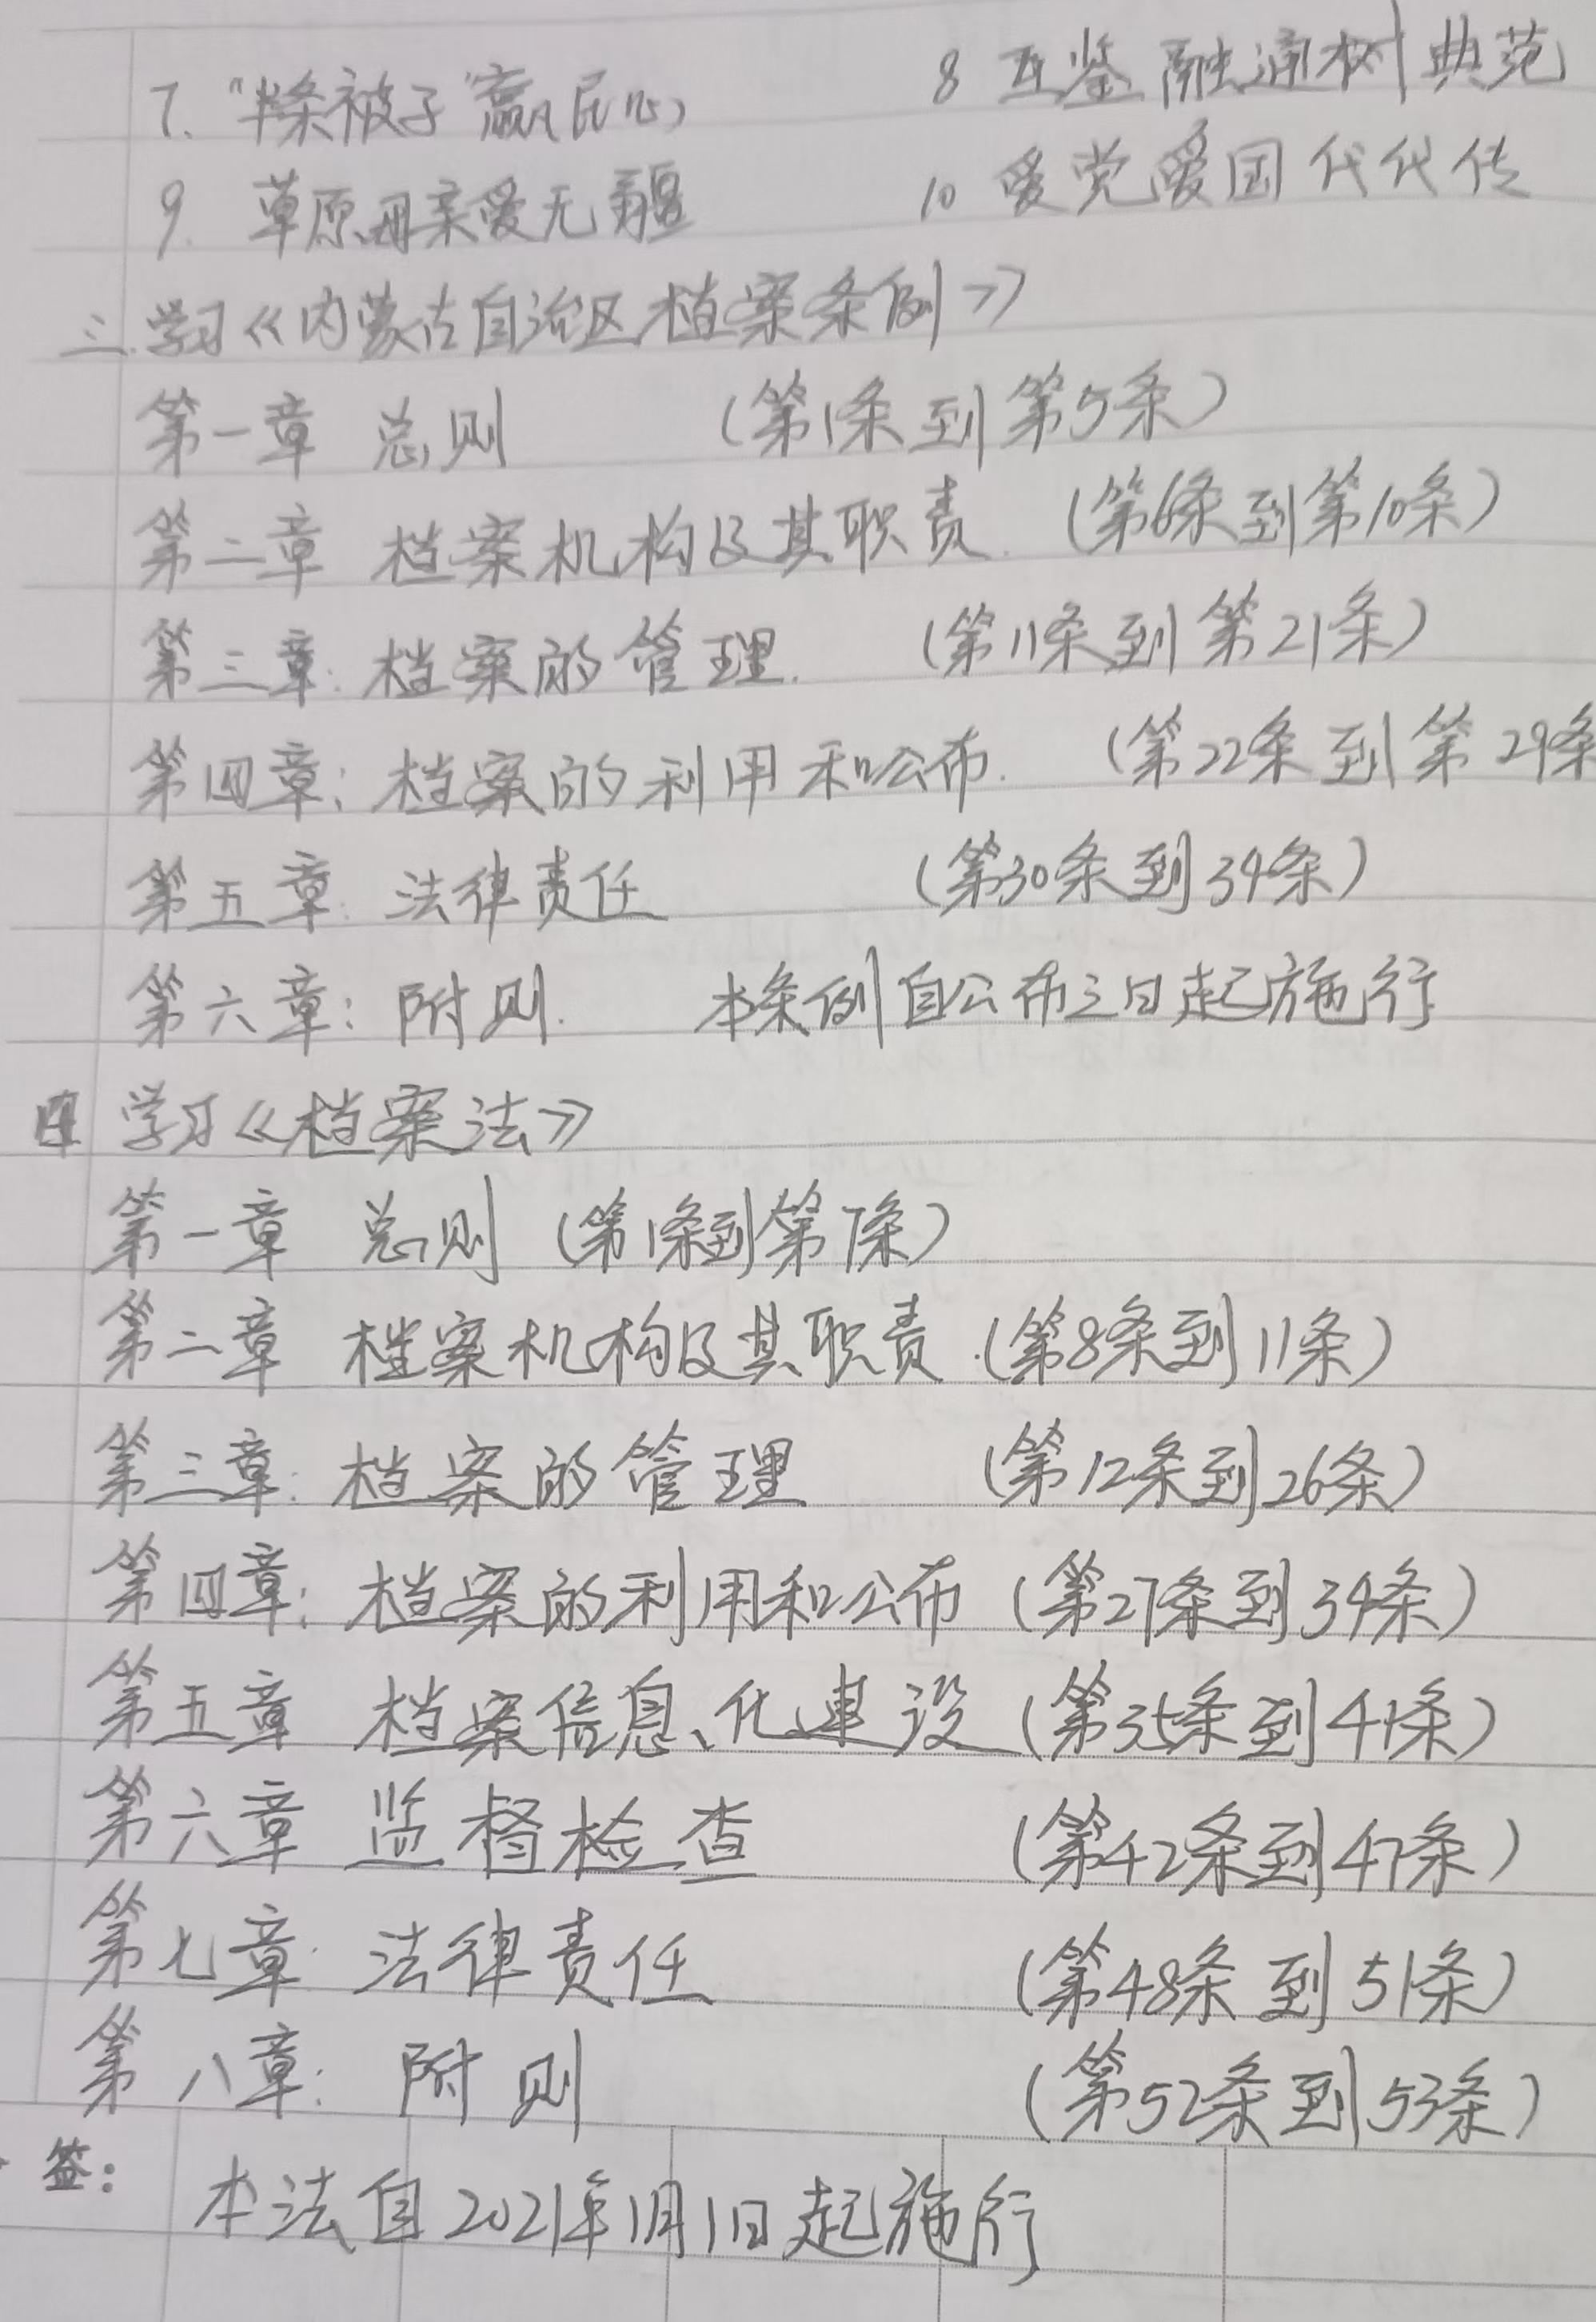 7. “半条被子”赢民心 8 互鉴融通树典范
9. 草原母亲爱无疆 10 爱党爱国代代传
三.学习《内蒙古自治区档案条例》
第一章 总则 (第1条到第5条)
第二章 档案机构及其职责. (第6条到第10条)
第三章: 档案的管理. (第11条到第21条)
第四章: 档案的利用和公布. (第22条到第29条
第五章: 法律责任 (第30条到34条)
第六章: 附则. 本条例自公布之日起施行
四 学习《档案法》
第一章 总则 (第1条到第7条)
第二章 档案机构及其职责.(第8条到11条)
第三章: 档案的管理 (第12条到26条)
第四章: 档案的利用和公布 (第27条到34条)
第五章 档案信息化建设 (第35条到41条)
第六章 监督检查 (第42条到47条)
第七章: 法律责任 (第48条到51条)
第八章: 附则 (第52条到53条)
签:
本法自2021年1月1日起施行